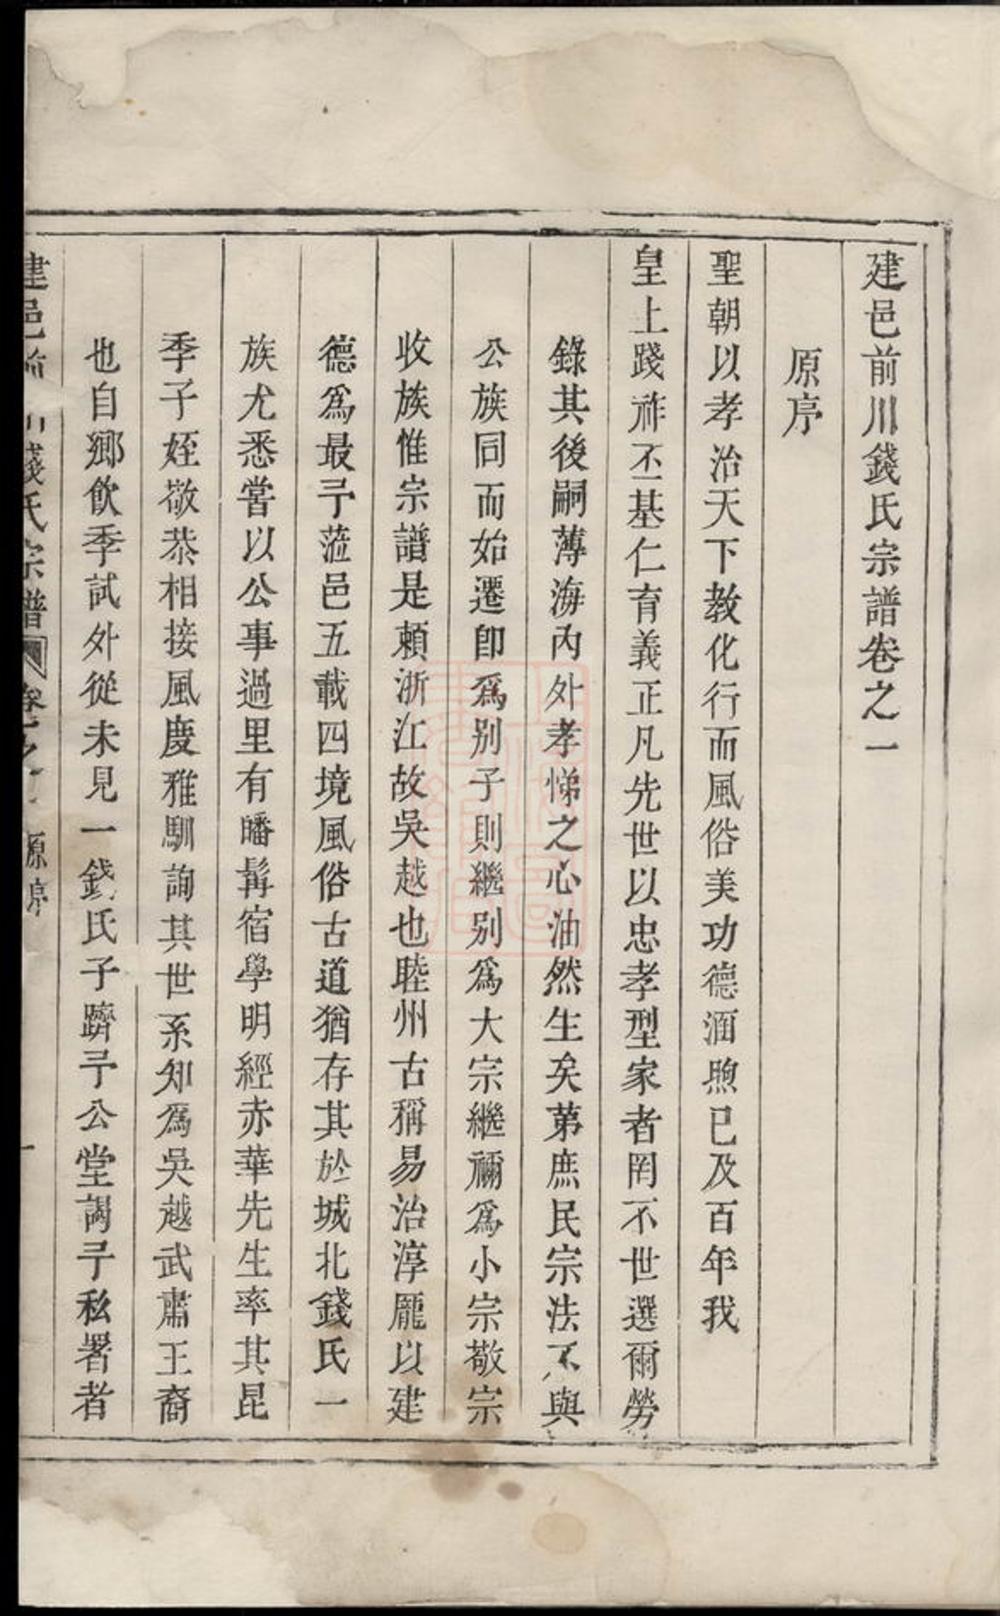 建邑前川錢氏宗譜卷之一
原序
聖朝以孝治天下教化行而風俗美功德涵煦已及百年我
皇上踐祚丕基仁育義正凡先世以忠孝型家者罔不世選爾勞
錄其後嗣薄海內外孝悌之心油然生矣第庶民宗法不與
公族同而始遷卽爲別子則繼別爲大宗繼禰爲小宗敬宗
收族惟宗譜是賴浙江故吳越也睦州古稱易治淳龐以建
德爲最予蒞邑五載四境風俗古道猶存其於城北錢氏一
族尤悉嘗以公事過里有皤髯宿學明經赤華先生率其昆
季子姪敬恭相接風度雅馴詢其世系知爲吳越武肅王裔
也自鄉飲季試外從未見一錢氏子躋予公堂謁予私署者
建邑前川錢氏宗譜 卷之一 原序 一